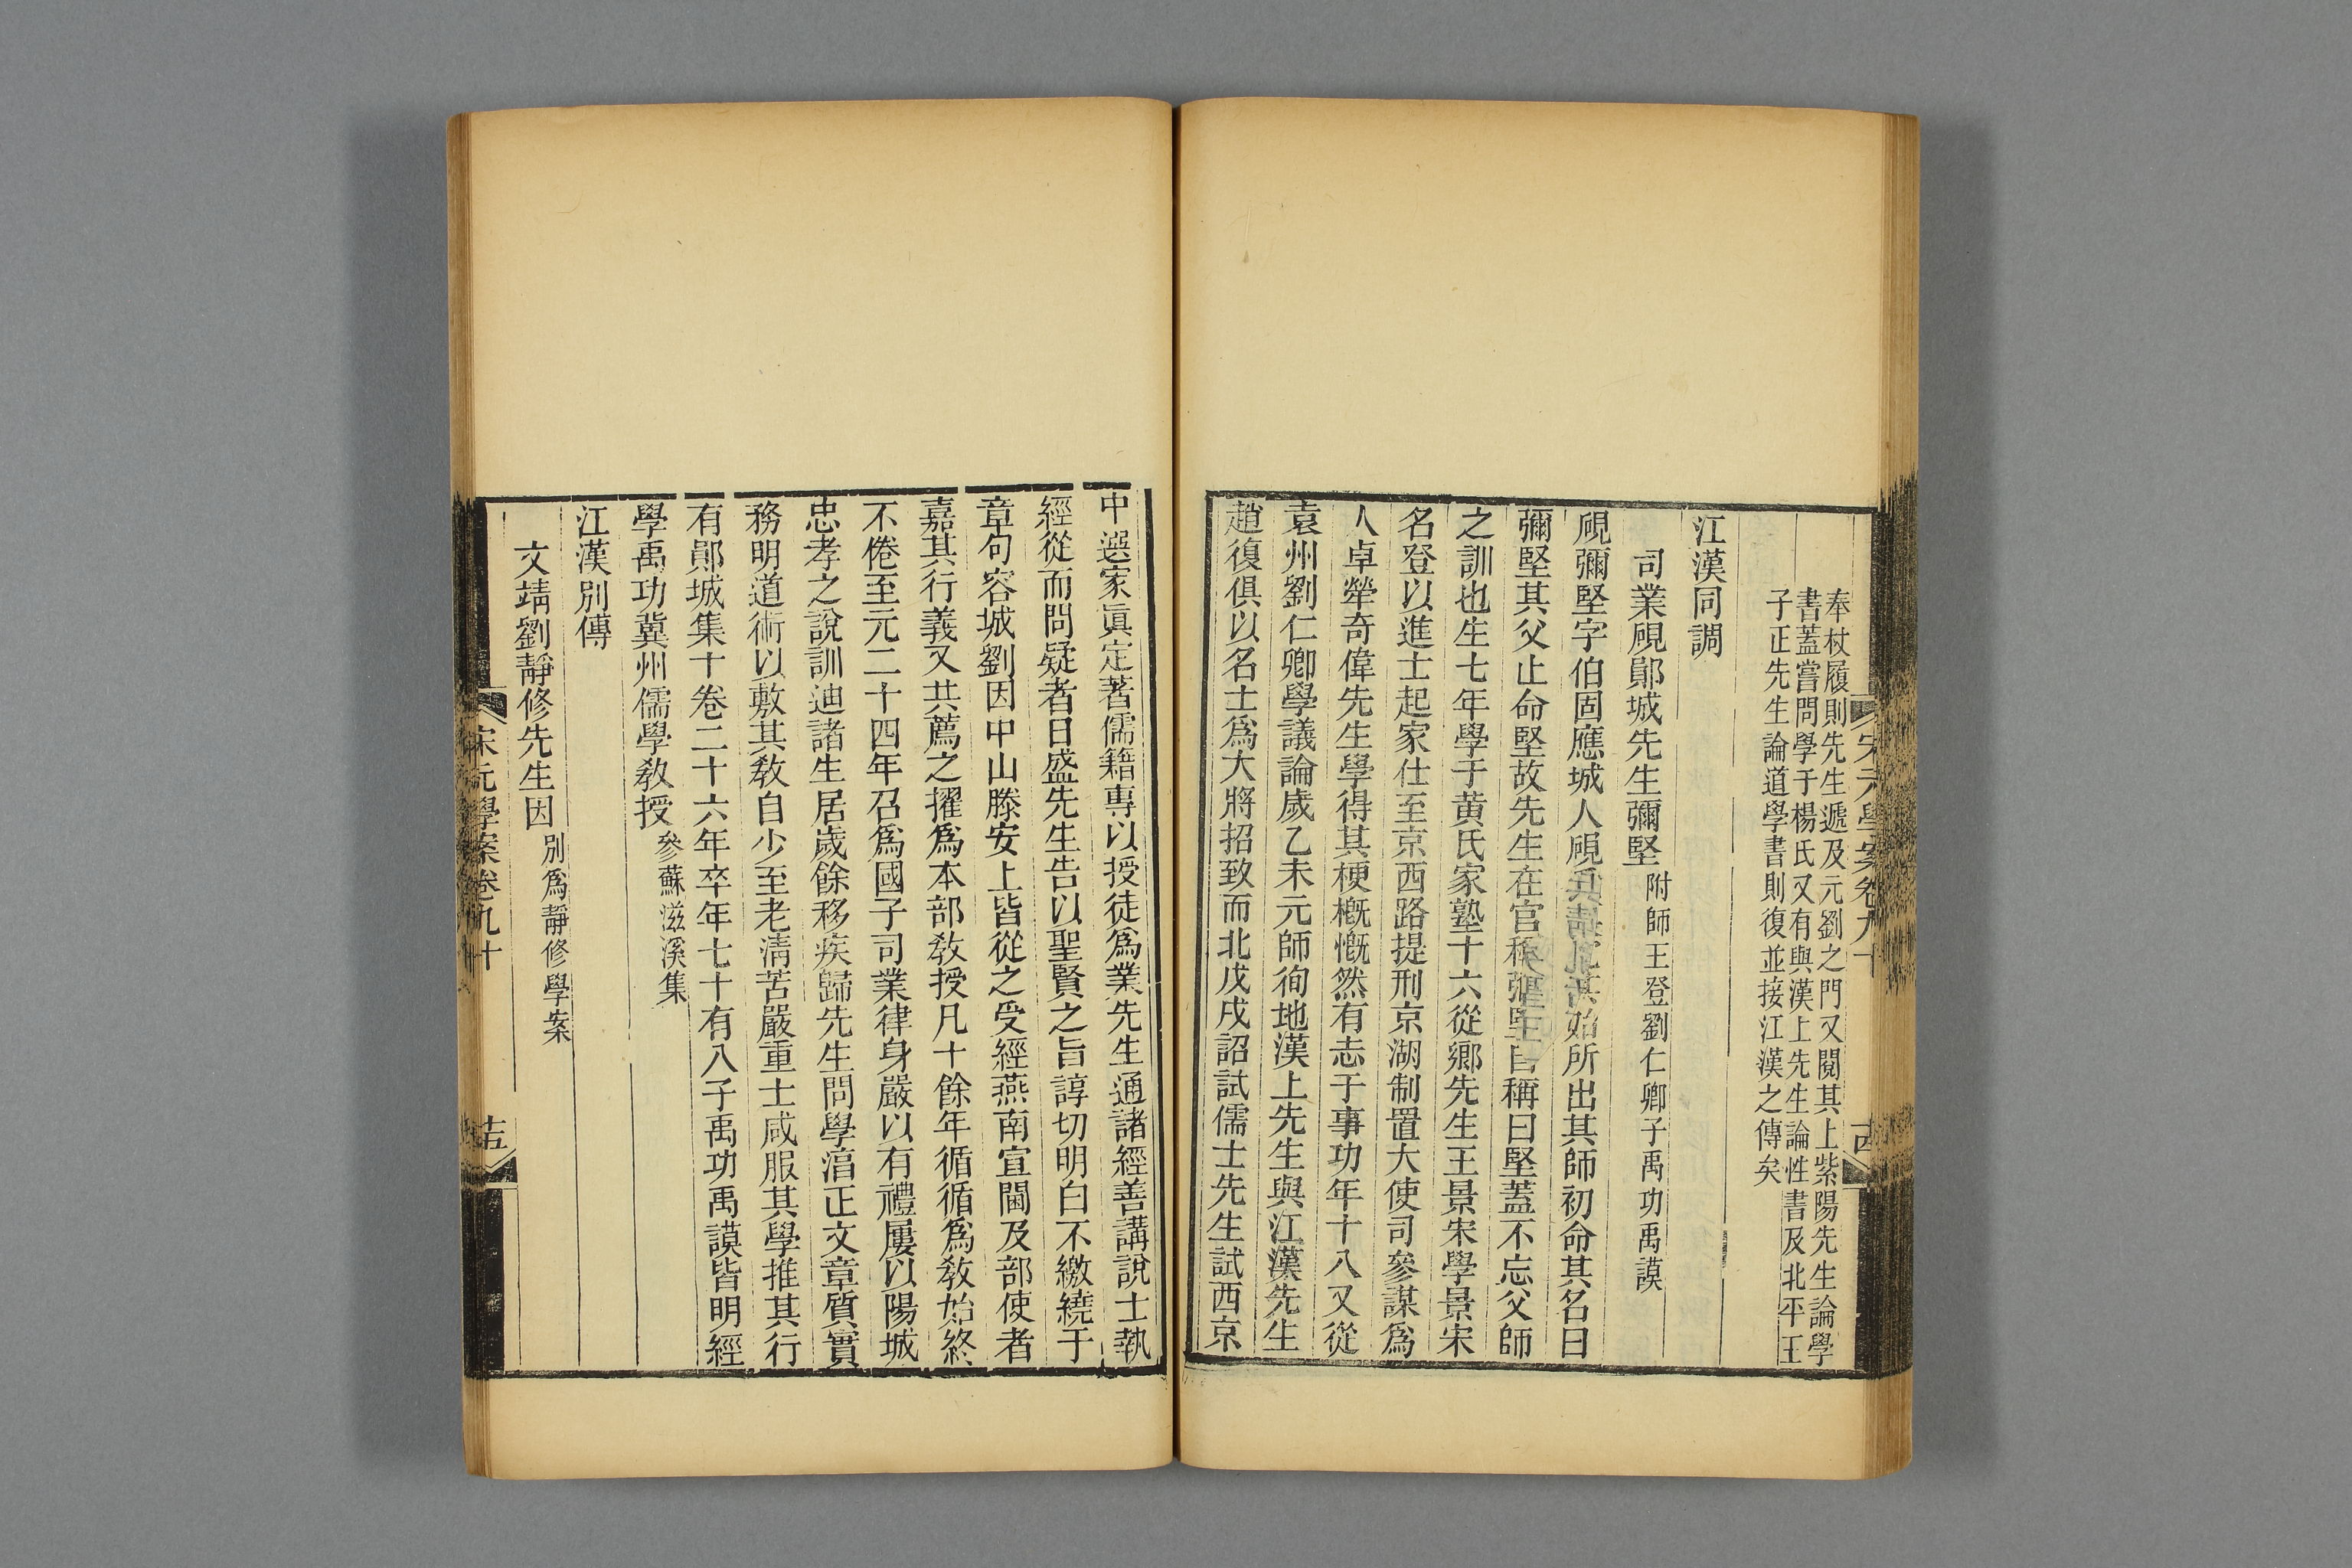 奉杖履則先生遞及元劉之門又閱其上紫陽先生論學
書蓋嘗問學于楊氏又有與漢上先生論性書及北平王
子正先生論道學書則復並接江漢之傳矣
江漢同調
司業硯鄖城先生彌堅附師王登劉仁卿子禹功禹謨
硯彌堅字伯固應城人硯氏所出其師初命其名曰
彌堅其父止命堅故先生在官稱彌堅自稱曰堅蓋不忘父師
之訓也生七年學于黃氏家塾十六從鄉先生王景宋學景宋
名登以進士起家仕至京西路提刑京湖制置大使司參謀爲
人卓犖奇偉先生學得其梗槪慨然有志于事功年十八又從
袁州劉仁卿學議論歲乙未元師徇地漢上先生與江漢先生
趙復俱以名士爲大將招致而北戊戌詔試儒士先生試西京
宋元學案卷九十
中選家眞定著儒籍專以授徒爲業先生通諸經善講說士執
經從而問疑者日盛先生告以聖賢之旨諄切明白不繳繞于
章句容城劉因中山滕安上皆從之受經燕南宣閫及部使者
嘉其行義又共薦之擢爲本部敎授凡十餘年循循爲敎始終
不倦至元二十四年召爲國子司業律身嚴以有禮屢以陽城
忠孝之說訓迪諸生居歲餘移疾歸先生問學淯正文章質實
務明道術以敷其敎自少至老淸苦嚴重士咸服其學推其行
有鄖城集十卷二十六年卒年七十有八子禹功禹謨皆明經
學禹功冀州儒學敎授參蘇滋溪集
江漢別傳
文靖劉靜修先生因別爲靜修學案
宋元學案卷九十